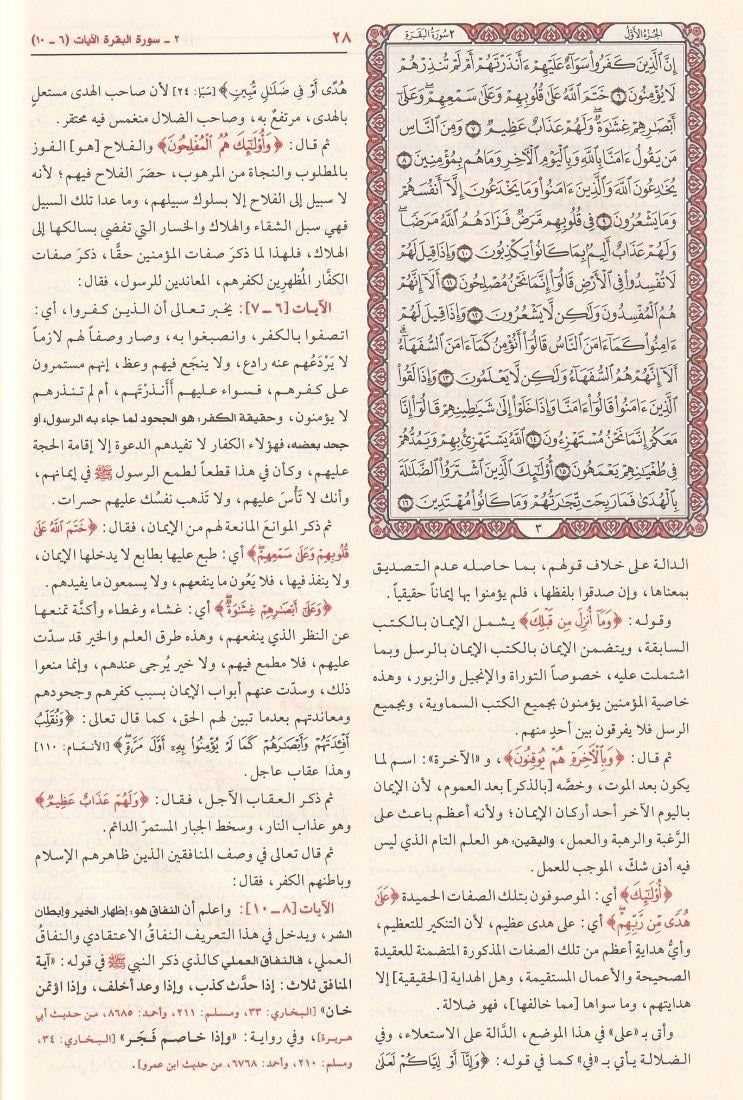 ٢ - سورة البقرة الآيات (٦ - ١٠)
٢٨
الجزء الأول
٢ سورة البقرة
إِنَّ الَّذِينَ كَفَرُوا سَوَاءٌ عَلَيْهِمْ ءَأَنذَرْتَهُمْ أَمْ لَمْ تُنذِرْهُمْ
لَا يُؤْمِنُونَ ٦ خَتَمَ اللَّهُ عَلَىٰ قُلُوبِهِمْ وَعَلَىٰ سَمْعِهِمْ ۖ وَعَلَىٰ
أَبْصَارِهِمْ غِشَاوَةٌ ۖ وَلَهُمْ عَذَابٌ عَظِيمٌ ٧ وَمِنَ النَّاسِ
مَن يَقُولُ ءَامَنَّا بِاللَّهِ وَبِالْيَوْمِ الْآخِرِ وَمَا هُم بِمُؤْمِنِينَ ٨
يُخَادِعُونَ اللَّهَ وَالَّذِينَ ءَامَنُوا وَمَا يَخْدَعُونَ إِلَّا أَنفُسَهُمْ
وَمَا يَشْعُرُونَ ٩ فِي قُلُوبِهِم مَّرَضٌ فَزَادَهُمُ اللَّهُ مَرَضًا ۖ
وَلَهُمْ عَذَابٌ أَلِيمٌ بِمَا كَانُوا يَكْذِبُونَ ١٠ وَإِذَا قِيلَ لَهُمْ
لَا تُفْسِدُوا فِي الْأَرْضِ قَالُوا إِنَّمَا نَحْنُ مُصْلِحُونَ ١١ أَلَا إِنَّهُمْ
هُمُ الْمُفْسِدُونَ وَلَٰكِن لَّا يَشْعُرُونَ ١٢ وَإِذَا قِيلَ لَهُمْ
ءَامِنُوا كَمَا ءَامَنَ النَّاسُ قَالُوا أَنُؤْمِنُ كَمَا ءَامَنَ السُّفَهَاءُ ۗ
أَلَا إِنَّهُمْ هُمُ السُّفَهَاءُ وَلَٰكِن لَّا يَعْلَمُونَ ١٣ وَإِذَا لَقُوا
الَّذِينَ ءَامَنُوا قَالُوا ءَامَنَّا وَإِذَا خَلَوْا إِلَىٰ شَيَاطِينِهِمْ قَالُوا إِنَّا
مَعَكُمْ إِنَّمَا نَحْنُ مُسْتَهْزِءُونَ ١٤ اللَّهُ يَسْتَهْزِئُ بِهِمْ وَيَمُدُّهُمْ
فِي طُغْيَانِهِمْ يَعْمَهُونَ ١٥ أُولَٰئِكَ الَّذِينَ اشْتَرَوُا الضَّلَالَةَ
بِالْهُدَىٰ فَمَا رَبِحَت تِّجَارَتُهُمْ وَمَا كَانُوا مُهْتَدِينَ ١٦
٣
الدالة على خلاف قولهم، بما حاصله عدم التصديق
بمعناها، وإن صدقوا بلفظها، فلم يؤمنوا بها إيماناً حقيقياً.
وقوله: ﴿وَمَا أُنزِلَ مِن قَبْلِكَ﴾ يشمل الإيمان بالكتب
السابقة، ويتضمن الإيمان بالكتب الإيمان بالرسل وبما
اشتملت عليه، خصوصاً التوراة والإنجيل والزبور، وهذه
خاصية المؤمنين يؤمنون بجميع الكتب السماوية، وبجميع
الرسل فلا يفرقون بين أحدٍ منهم.
ثم قال: ﴿وَبِالْآخِرَةِ هُمْ يُوقِنُونَ﴾، و «الآخرة»: اسم لما
يكون بعد الموت، وخصَّه [بالذكر] بعد العموم، لأن الإيمان
باليوم الآخر أحد أركان الإيمان؛ ولأنه أعظم باعث على
الرَّغبة والرهبة والعمل، واليقين: هو العلم التام الذي ليس
فيه أدنى شكّ، الموجب للعمل.
﴿أُولَٰئِكَ﴾ أي: الموصوفون بتلك الصفات الحميدة ﴿عَلَىٰ
هُدًى مِّن رَّبِّهِمْ ۖ﴾ أي: على هدى عظيم، لأن التنكير للتعظيم،
وأيُّ هدايةٍ أعظم من تلك الصفات المذكورة المتضمنة للعقيدة
الصحيحة والأعمال المستقيمة، وهل الهداية [الحقيقية] إلا
هدايتهم، وما سواها [مما خالفها]، فهو ضلالة.
وأتى بـ «على» في هذا الموضع، الدَّالة على الاستعلاء، وفي
الضلالة يأتي بـ «في» كما في قوله: ﴿وَإِنَّا أَوْ إِيَّاكُمْ لَعَلَىٰ
هُدًى أَوْ فِي ضَلَالٍ مُّبِينٍ﴾ [سَبَأ: ٢٤] لأن صاحب الهدى مستعلٍ
بالهدى، مرتفعٌ به، وصاحب الضلال منغمس فيه محتقر.
ثم قال: ﴿وَأُولَٰئِكَ هُمُ الْمُفْلِحُونَ﴾ والفلاح [هو] الفوز
بالمطلوب والنجاة من المرهوب، حصَرَ الفلاح فيهم؛ لأنه
لا سبيل إلى الفلاح إلا بسلوك سبيلهم، وما عدا تلك السبيل
فهي سبل الشقاء والهلاك والخسار التي تفضي بسالكها إلى
الهلاك، فلهذا لما ذكَرَ صفات المؤمنين حقًّا، ذكرَ صفات
الكفَّار المُظهرِين لكفرهم، المعاندين للرسول، فقال:
الآيات [٦ - ٧]: يخبر تعالى أن الذين كفروا، أي:
اتصفوا بالكفر، وانصبغوا به، وصار وصفاً لهم لازماً
لا يَرْدَعُهم عنه رادع، ولا ينجَع فيهم وعظ، إنهم مستمرون
على كفرهم، فسواء عليهم أأنذرْتَهم، أم لم تنذرهم
لا يؤمنون، وحقيقة الكفر: هو الجحود لما جاء به الرسول، أو
جحد بعضه، فهؤلاء الكفار لا تفيدهم الدعوة إلا إقامة الحجة
عليهم، وكأن في هذا قطعاً لطمع الرسول ﷺ في إيمانهم،
وأنك لا تَأْسَ عليهم، ولا تَذهب نفسُك عليهم حسرات.
ثم ذكر الموانعَ المانعة لهم من الإيمان، فقال: ﴿خَتَمَ اللَّهُ عَلَىٰ
قُلُوبِهِمْ وَعَلَىٰ سَمْعِهِمْ ۖ﴾ أي: طبع عليها بطابع لا يدخلها الإيمان،
ولا ينفذ فيها، فلا يَعُون ما ينفعهم، ولا يسمعون ما يفيدهم.
﴿وَعَلَىٰ أَبْصَارِهِمْ غِشَاوَةٌ ۖ﴾ أي: غشاء وغطاء وأكنَّة تمنعها
عن النظر الذي ينفعهم، وهذه طرق العلم والخير قد سدّت
عليهم، فلا مطمع فيهم، ولا خير يُرجى عندهم، وإنما منعوا
ذلك، وسدّت عنهم أبواب الإيمان بسبب كفرهم وجحودهم
ومعاندتهم بعدما تبين لهم الحق، كما قال تعالى: ﴿وَنُقَلِّبُ
أَفْئِدَتَهُمْ وَأَبْصَارَهُمْ كَمَا لَمْ يُؤْمِنُوا بِهِ أَوَّلَ مَرَّةٍ﴾ [الأنعَام: ١١٠]
وهذا عقاب عاجل.
ثم ذكر العقاب الآجل، فقال: ﴿وَلَهُمْ عَذَابٌ عَظِيمٌ﴾
وهو عذاب النار، وسخط الجبار المستمرّ الدائم.
ثم قال تعالى في وصف المنافقين الذين ظاهرهم الإسلام
وباطنهم الكفر، فقال:
الآيات [٨ - ١٠]: واعلم أن النفاق هو: إظهار الخير وإبطان
الشر، ويدخل في هذا التعريف النفاقُ الاعتقادي والنفاقُ
العملي، فالنفاق العملي كالذي ذكر النبي ﷺ في قوله: «آية
المنافق ثلاث: إذا حدَّث كذب، وإذا وعد أخلف، وإذا اؤتمن
خان» [البخاري: ٣٣، ومسلم: ٢١١، وأحمد: ٨٦٨٥، من حديث أبي
هريرة]، وفي رواية: «وإذا خاصم فَجَر» [البخاري: ٣٤،
ومسلم: ٢١٠، وأحمد: ٦٧٦٨، من حديث ابن عمرو].